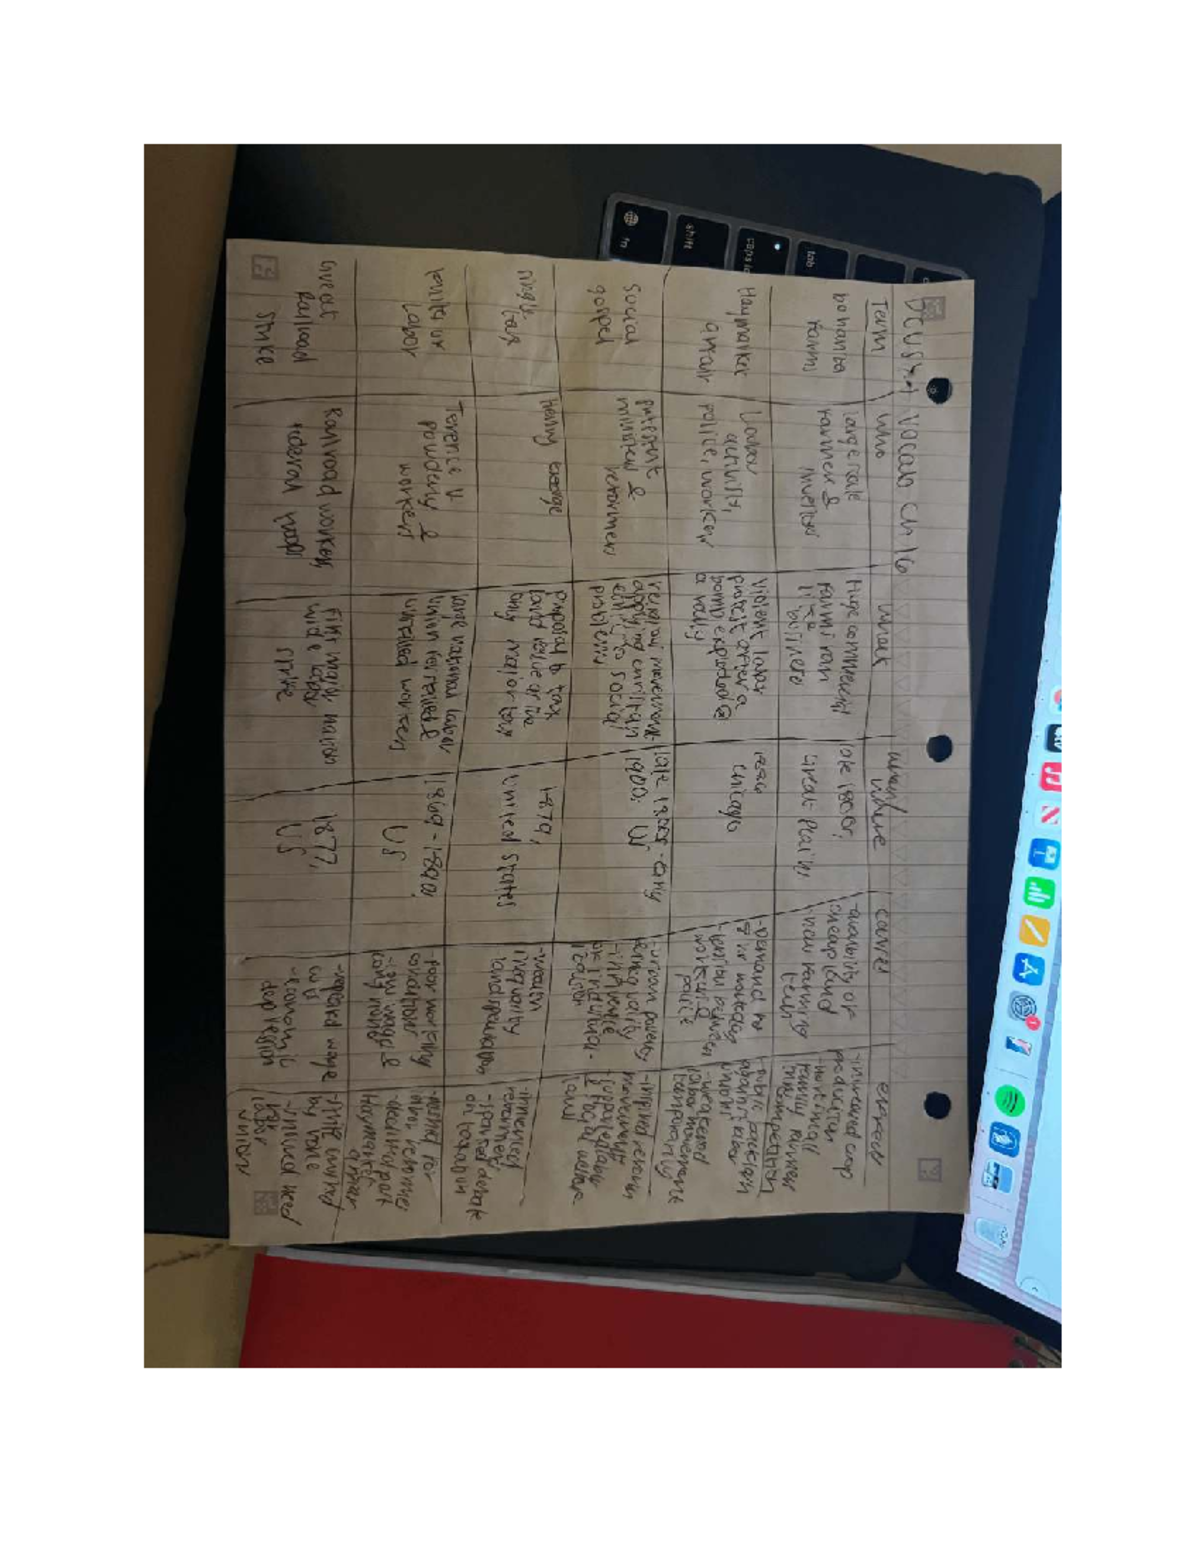 DCUSH vocab Ch 16
Term
who
what
when/where
causes
effects
bonanza
farms
large scale
farmers &
investors
Huge commercial
farms ran
like
business
late 1800s,
Great Plains
-availability of
cheap land
-new farming
tech
-increased crop
production
-hurt small
family farmers
competition
Haymarket
affair
Labor
activists,
police, workers
violent labor
protest after a
bomb exploded @
a rally
1886
chicago
-Demand
8 hr workday
-tension between
workers &
police
-public backlash
against labor
unions
-weakened
labor movement
temporarily
Social
gospel
protestant
ministers &
reformers
religious movement
applying christian
ethics to social
problems
late 1800s-early
1900s
-urban poverty
-influence
of industrial-
ization
-inspired reform
movements
& social welfare
single
tax
Henry George
proposal to tax
land value as the
only major tax
1879,
United States
-wealth
inequality
-land speculation
-influenced
reformers
-started debate
on taxation
Knights of
Labor
Terence V
Powderly &
workers
large national labor
union for skilled &
unskilled workers
1869-1890s,
US
-poor working
conditions
-low wages &
long hours
-pushed for
labor reforms
-declined past
Haymarket
affair
Great
Railroad
Strike
Railroad workers
federal troops
First major nation
wide labor
strike
1877,
US
wage
cuts
-economic
depression
-strike
by force
need
for
labor
unions
fn
shift
caps l
tab